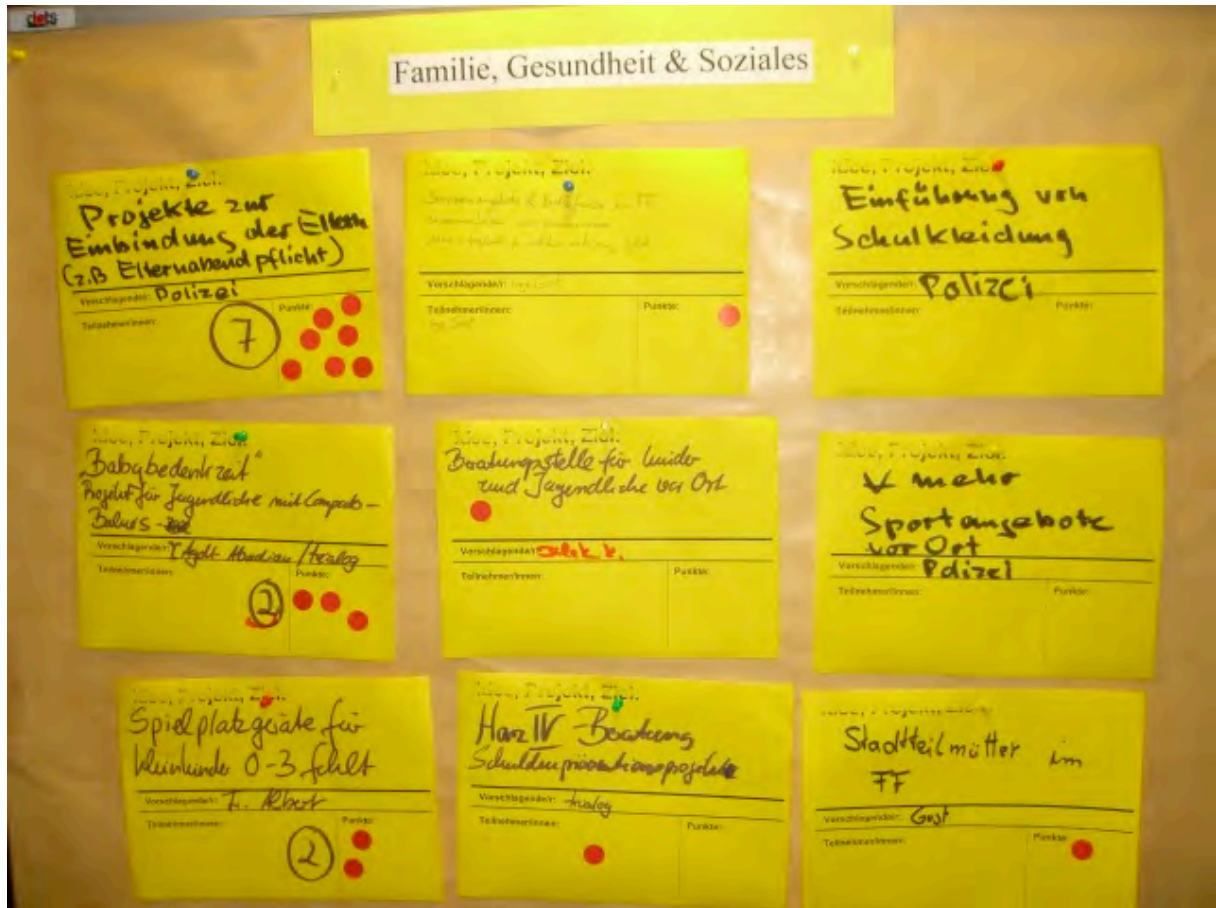 dots
Familie, Gesundheit & Soziales
Idee, Projekt, Ziel:
Projekte zur
Einbindung der Eltern
(z.B Elternabendpflicht)
Vorschlagende/r: Polizei
Teilnehmer/innen:
Punkte:
7
Idee, Projekt, Ziel:
Vorschlagende/r:
Teilnehmer/innen:
Punkte:
Idee, Projekt, Ziel:
Einführung von
Schulkleidung
Vorschlagende/r: Polizei
Teilnehmer/innen:
Punkte:
Idee, Projekt, Ziel:
"Babybedenkzeit"
Projekt für Jugendliche mit Computer-
Babies
Vorschlagende/r: / trialog
Teilnehmer/innen:
Punkte:
2
Idee, Projekt, Ziel:
Beratungsstelle für Kinder
und Jugendliche vor Ort
Vorschlagende/r:
Teilnehmer/innen:
Punkte:
Idee, Projekt, Ziel:
mehr
Sportangebote
vor Ort
Vorschlagende/r: Polizei
Teilnehmer/innen:
Punkte:
Idee, Projekt, Ziel:
Spielplatzgeräte für
Kleinkinder 0-3 fehlt
Vorschlagende/r: Fr. Albert
Teilnehmer/innen:
Punkte:
2
Idee, Projekt, Ziel:
Harz IV - Beratung
Schuldenpräventionsprojekte
Vorschlagende/r: trialog
Teilnehmer/innen:
Punkte:
Idee, Projekt, Ziel:
Stadtteilmütter im
FF
Vorschlagende/r: Gest
Teilnehmer/innen:
Punkte: